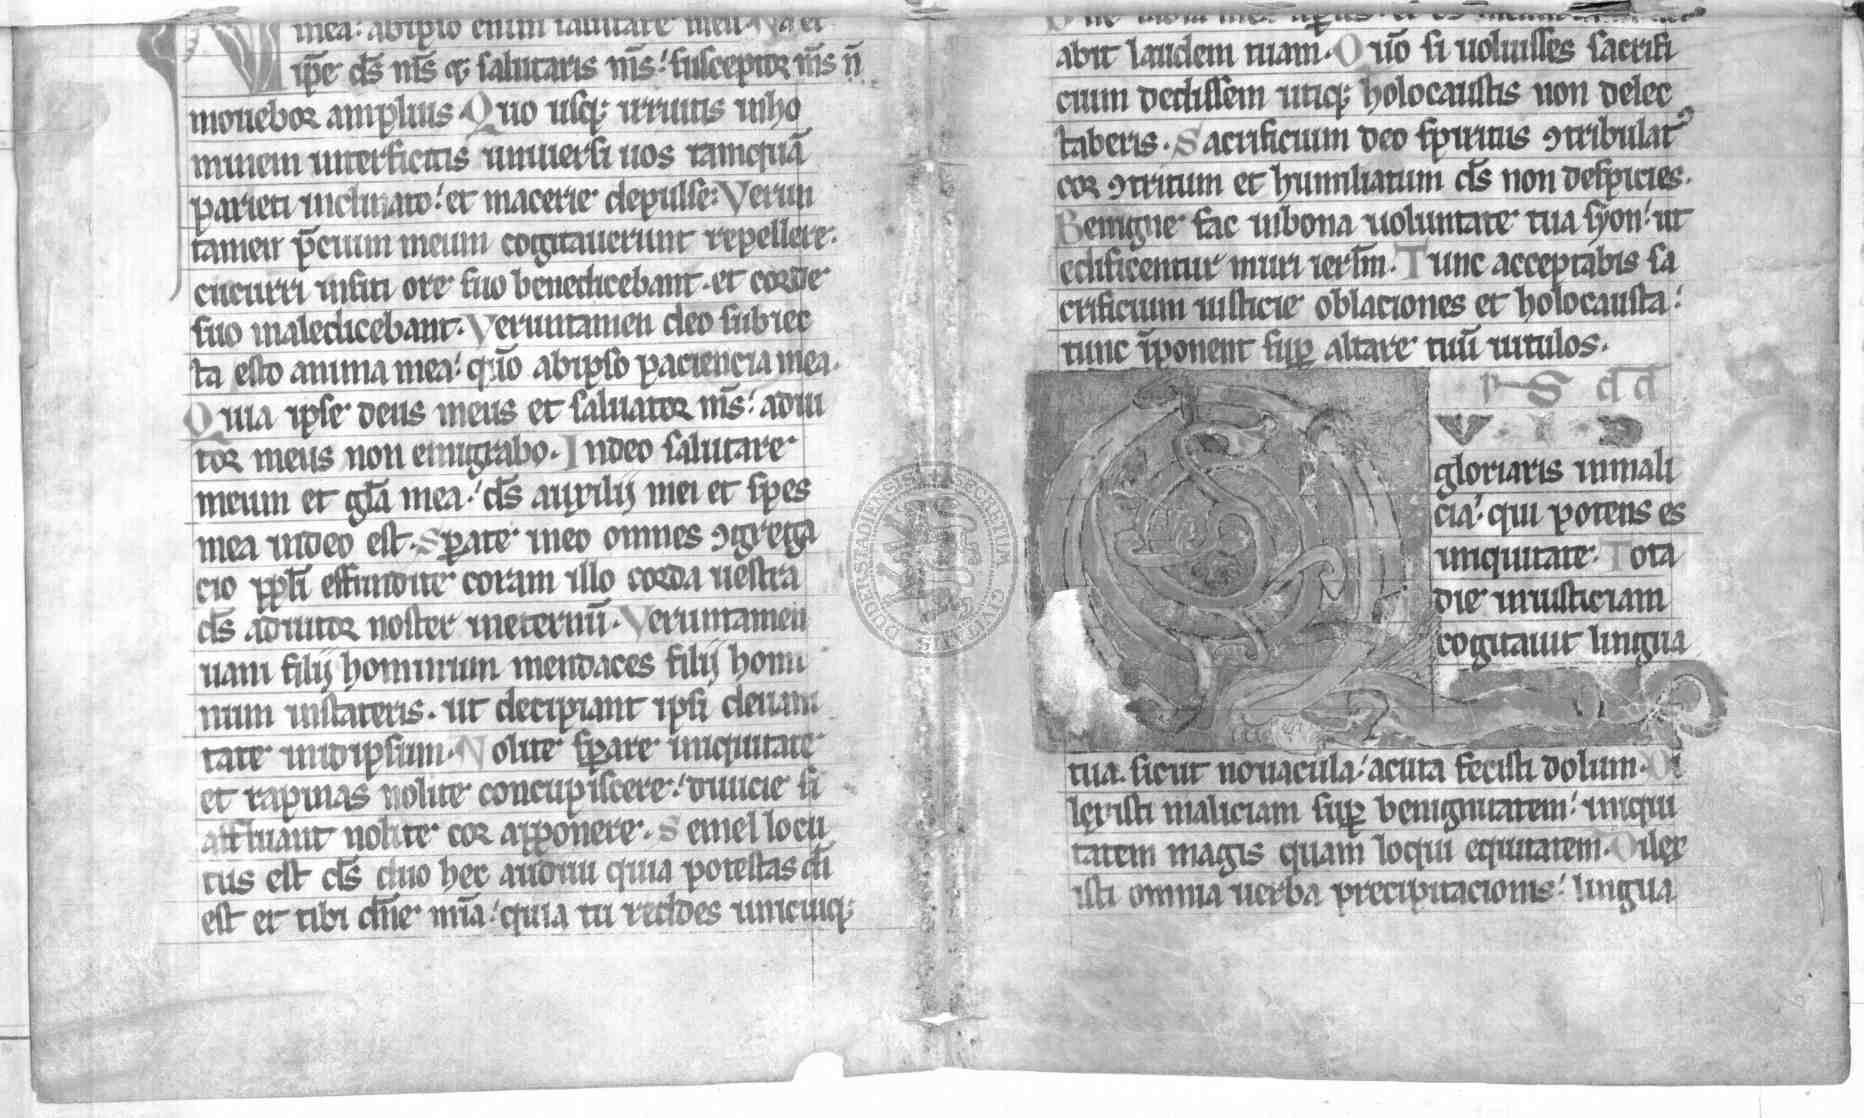 mea: abipso enim salutare meu. Na et
ip̄e ds̄ ms̄ ⁊ salutaris ms̄: susceptor ms̄ n̄
mouebor amplius Quo usq; irruitis inho
minem interficitis uniuersi uos tamquā
parieti inclinato: et macerie depulse: Verun
tamen p̄cium meum cogitauerunt repellere.
cucurri insiti ore suo benedicebant. et corde
suo maledicebant. Veruntamen deo subiec
ta esto anima mea: qm̄o abipso paciencia mea.
Quia ipse deus meus et saluator ms̄: adiu
tor meus non emigrabo. Indeo salutare
meum et gl̄a mea: ds̄ auxilij mei et spes
mea indeo est. Sꝑate ineo omnes ꝯgrega
cio ppl̄i effundite coram illo corda uestra
ds̄ adiutor noster ineternū. Veruntamen
uani filij hominum mendaces filij homi
num instateris. ut decipiant ipsi deuani
tate inidipsum. Nolite sꝑare iniquitate
et rapinas nolite concupiscere: diuicie si
affluant nolite cor apponere. Semel locu
tus est ds̄ duo hec audiui quia potestas di̅
est et tibi dn̄e mīa: quia tu reddes unicuiq;
abit laudem tuam. Qūo si uoluisses sacrifi
cium dedissem utiq; holocaustis non delec
taberis. Sacrificium deo spiritus ꝯtribulatꝰ
cor ꝯtritum et humiliatum ds̄ non despicies.
Benigne fac inbona uoluntate tua syon: ut
edificentur muri ierl̄m. Tunc acceptabis sa
crificium iusticie oblaciones et holocausta:
tunc īponent suꝑ altare tuū uitulos.
pS dd
QVID
gloriaris inmali
cia: qui potens es
iniquitate. Tota
die iniusticiam
cogitauit lingua
tua. sicut nouacula: acuta fecisti dolum. Di
lexisti maliciam suꝑ benignitatem: iniqui
tatem magis quam loqui equitatem. Dilex
isti omnia uerba precipitacionis: lingua
SECRETUM CIVITATIS DUDERSTADIENSIS